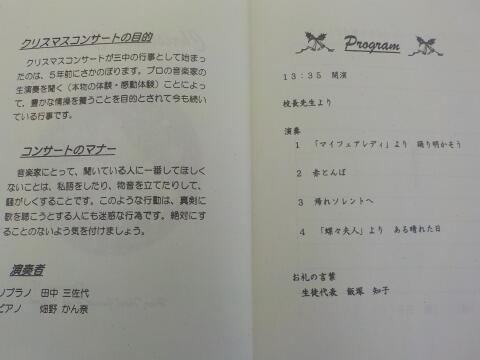 クリスマスコンサートの目的
クリスマスコンサートが三中の行事として始まっ
たのは、5年前にさかのぼります。プロの音楽家の
生演奏を聞く(本物の体験・感動体験)ことによっ
て、豊かな情操を養うことを目的とされて今も続い
ている行事です。
コンサートのマナー
音楽家にとって、聞いている人に一番してほしく
ないことは、私語をしたり、物音を立てたりして、
騒がしくすることです。このような行動は、真剣に
歌を聴こうとする人にも迷惑な行為です。絶対にす
ることのないよう気を付けましょう。
演奏者
ソプラノ 田中 三佐代
ピアノ 畑野 かん奈
Program
13:35 開演
校長先生より
演奏
1 「マイフェアレディ」より 踊り明かそう
2 赤とんぼ
3 帰れソレントへ
4 「蝶々夫人」より ある晴れた日
お礼の言葉
生徒代表 飯塚 知子